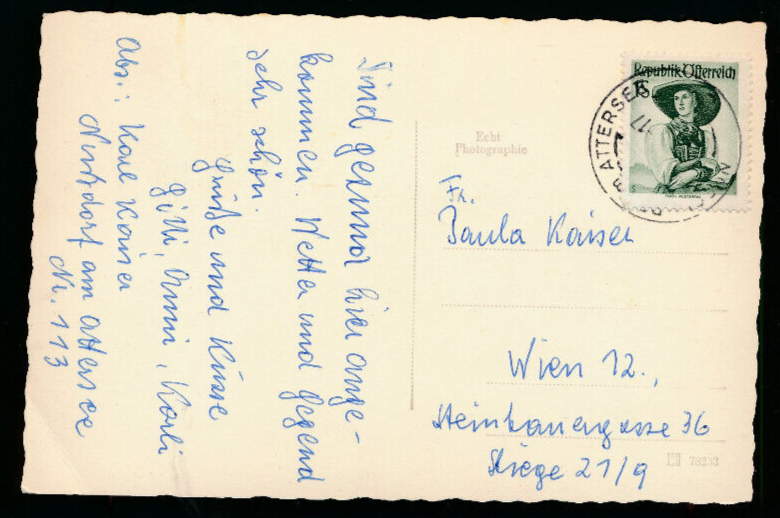 Sind gesund hier ange-
kommen. Wetter und Gegend
sehr schön.
Grüße und Küsse
Gitti, Anni, Karli
Abs.: Karl Kaiser
Nußdorf am Attersee
Nr. 113
Echt
Photographie
Republik Österreich
ATTERSEE
Fr.
Paula Kaiser
Wien 12.,
Steinbauergasse 36
Stiege 21/9